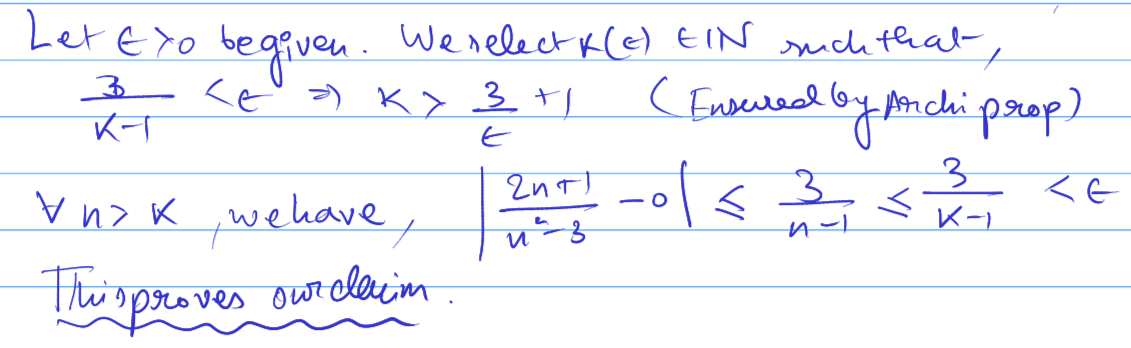 Let ϵ>0 be given. We select K(ϵ) ∈ ℕ such that,
3/(K-1) < ϵ ⇒ K > 3/ϵ + 1 (Ensured by Archi prop)
∀ n > K, we have, |(2n+1)/(n²-3) - 0| ≤ 3/(n-1) ≤ 3/(K-1) < ϵ
This proves our claim.